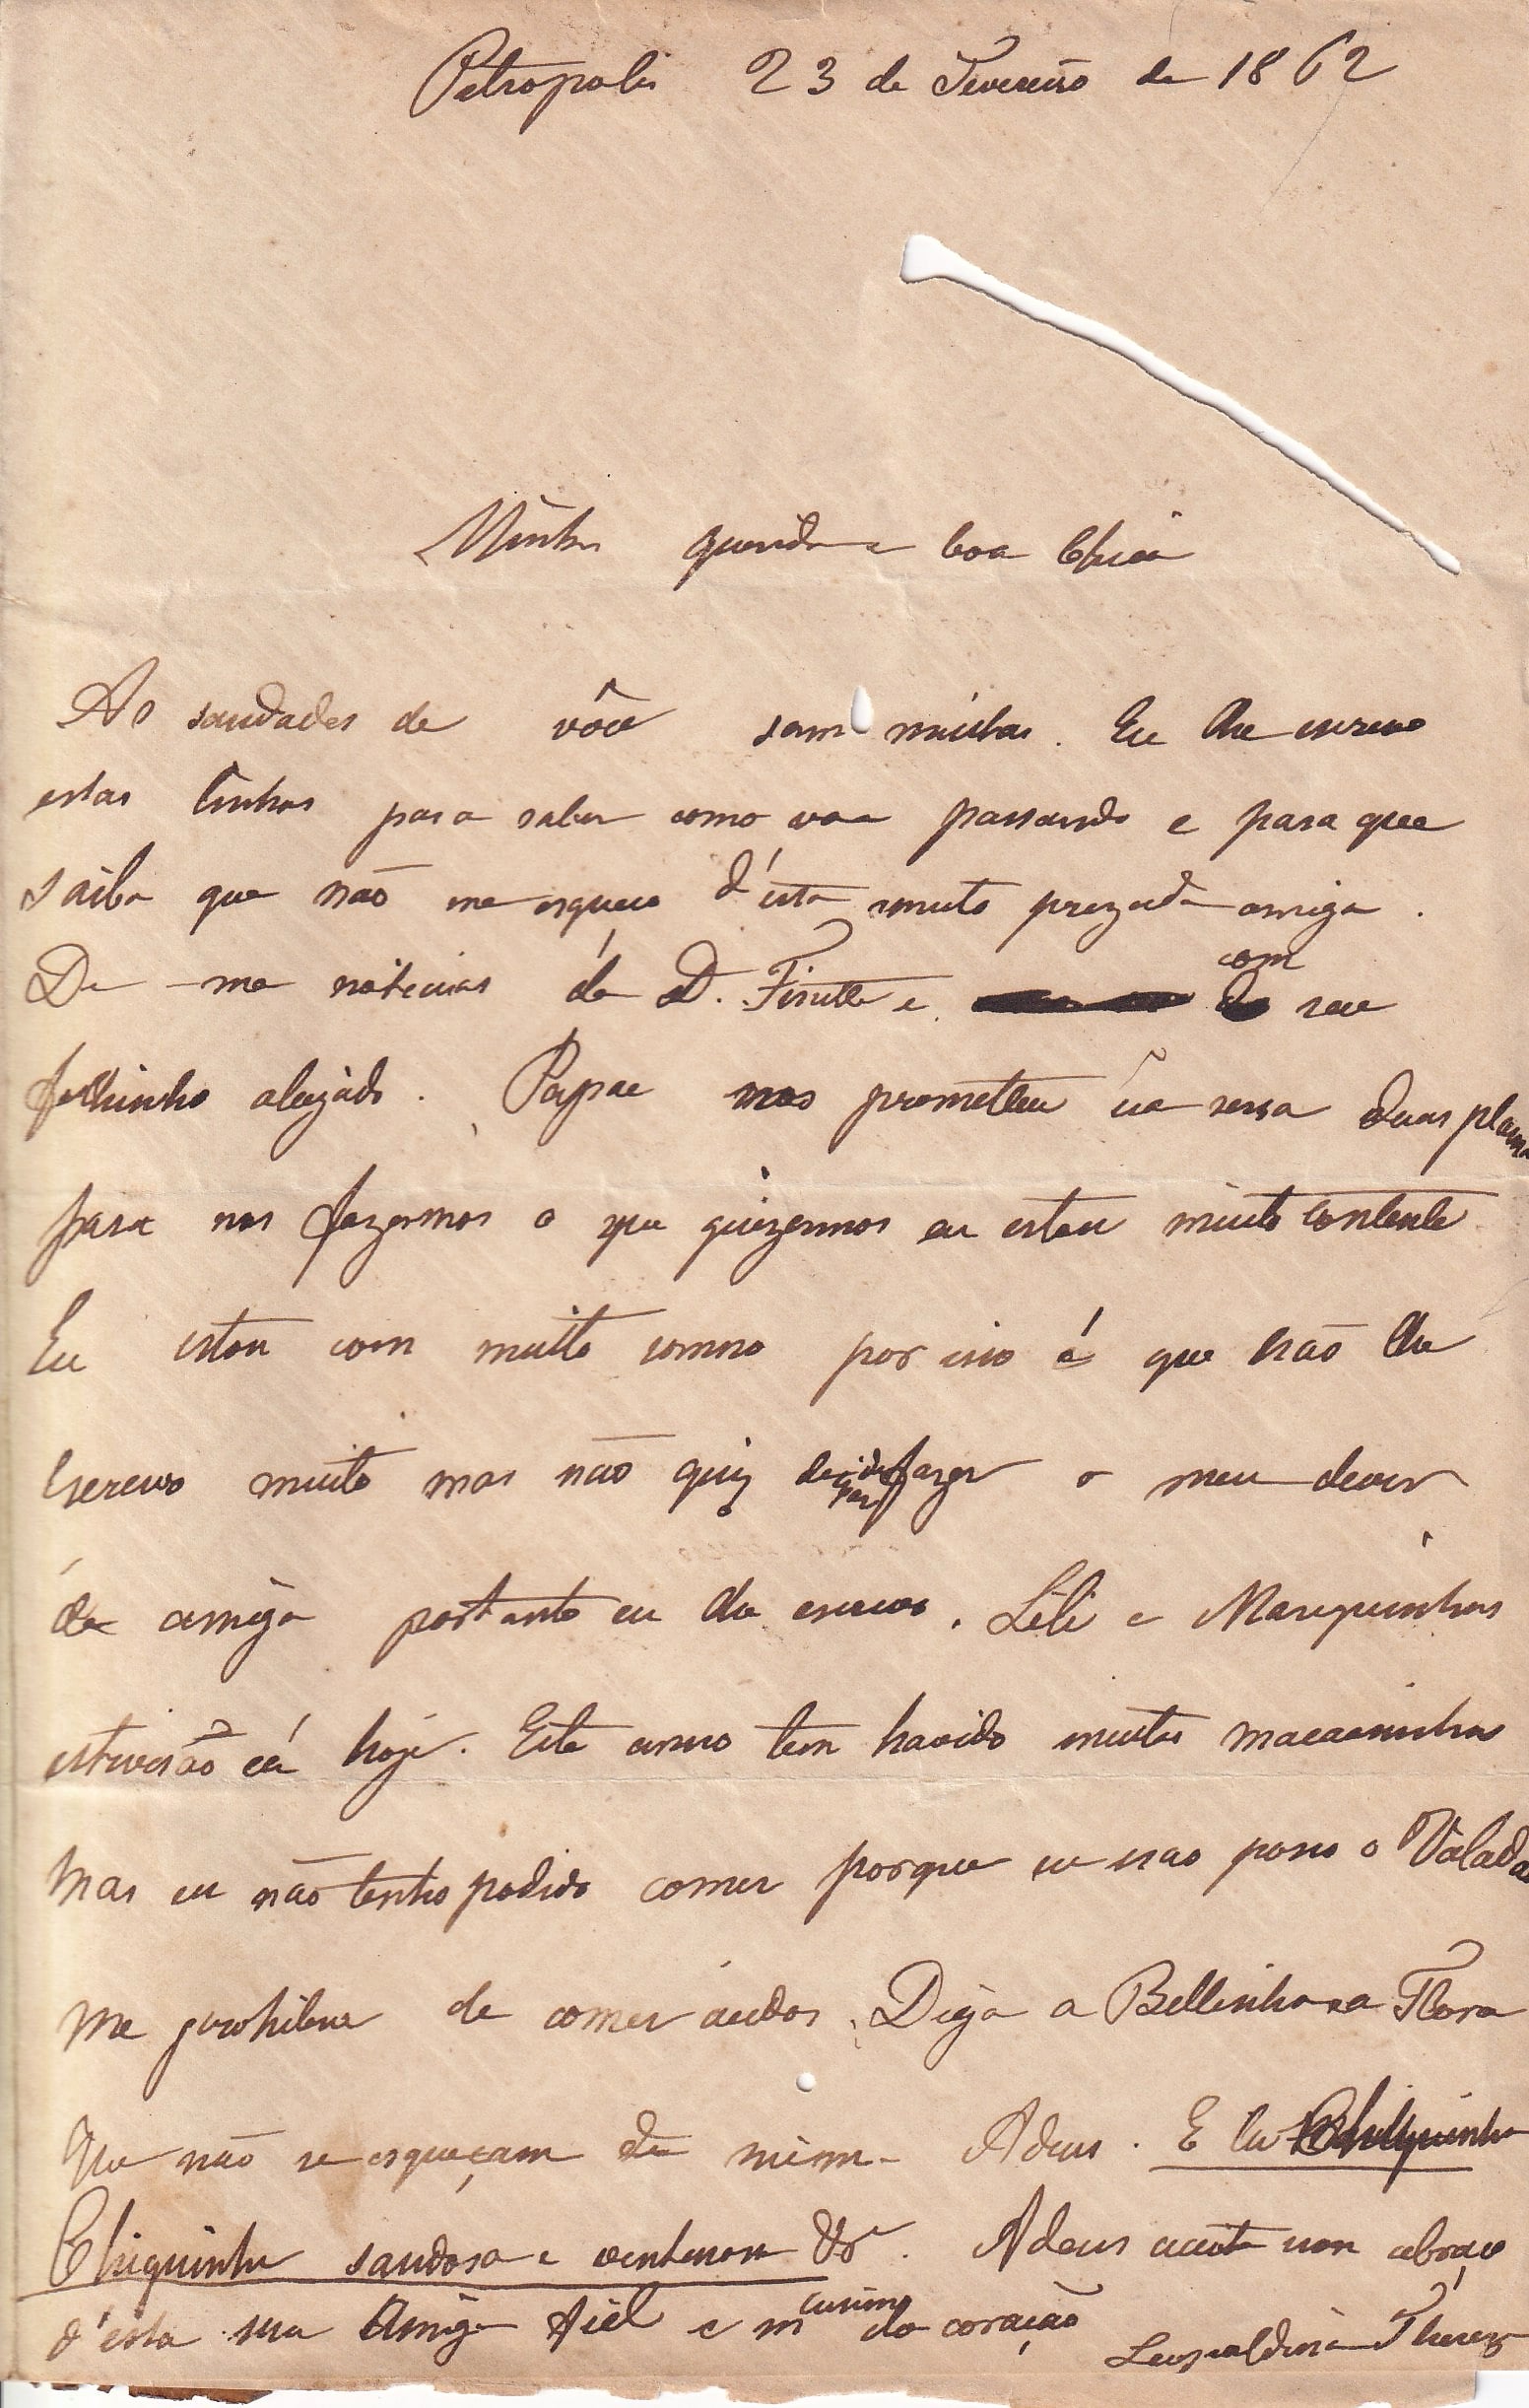 Petropolis 23 de Fevereiro de 1862
Minha querida e boa Chica
As saudades de vôce sam muitas. Eu lhe escrevo
estas linhas para saber como vae passando e para que
saiba que não me esqueço d'esta muito prezada amiga.
De-me noticias de D. Finette e com seu
filhinho aleijado. Papae nos prometteu
para nos fazermos o que quizermos eu estou muito contente
Eu estou com muito somno por isso é que não lhe
escrevo muito mas não quiz fazer o meu dever
de amiga portanto eu lhe escrevo. Lili e Mariquinhas
estiverão cá hoje. Este anno tem havido muitas macaaninhas
mas eu não tenho podido comer porque eu não posso o Valadão
me prohibiu de comer acidos. Diga a Bellinha e a Flora
Que não se esqueçam de mim. Adeus. E la Chiquinha
Chiquinha saudosa e Adeus aceite um abraço
d'esta sua Amiga fiel e do coração
Leopoldina Thereza